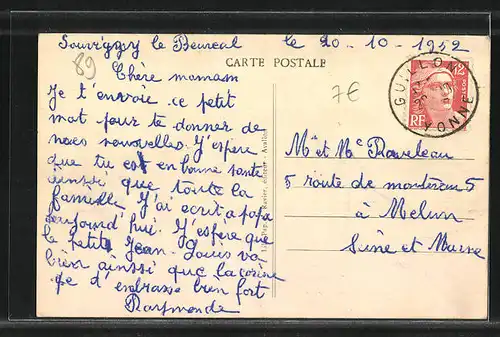 Souvigny le Beureal le 20-10-1952
89
CARTE POSTALE
Chère maman
Je t'envoie ce petit
mot pour te donner de
nous nouvelles. J'espère
que tu est en bonne santé
ainssi que toute la
famille. J'ai ecrit a papa
aujourd'hui. J'espère que
le petit Jean-Louis va
bien ainssi que la
je d'embrasse bien fort
Raymonde
7€
GUILLON
YONNE
12
RF
Mr et Me Raveleau
5 route de montereau 5
à Melun
Seine et Marne